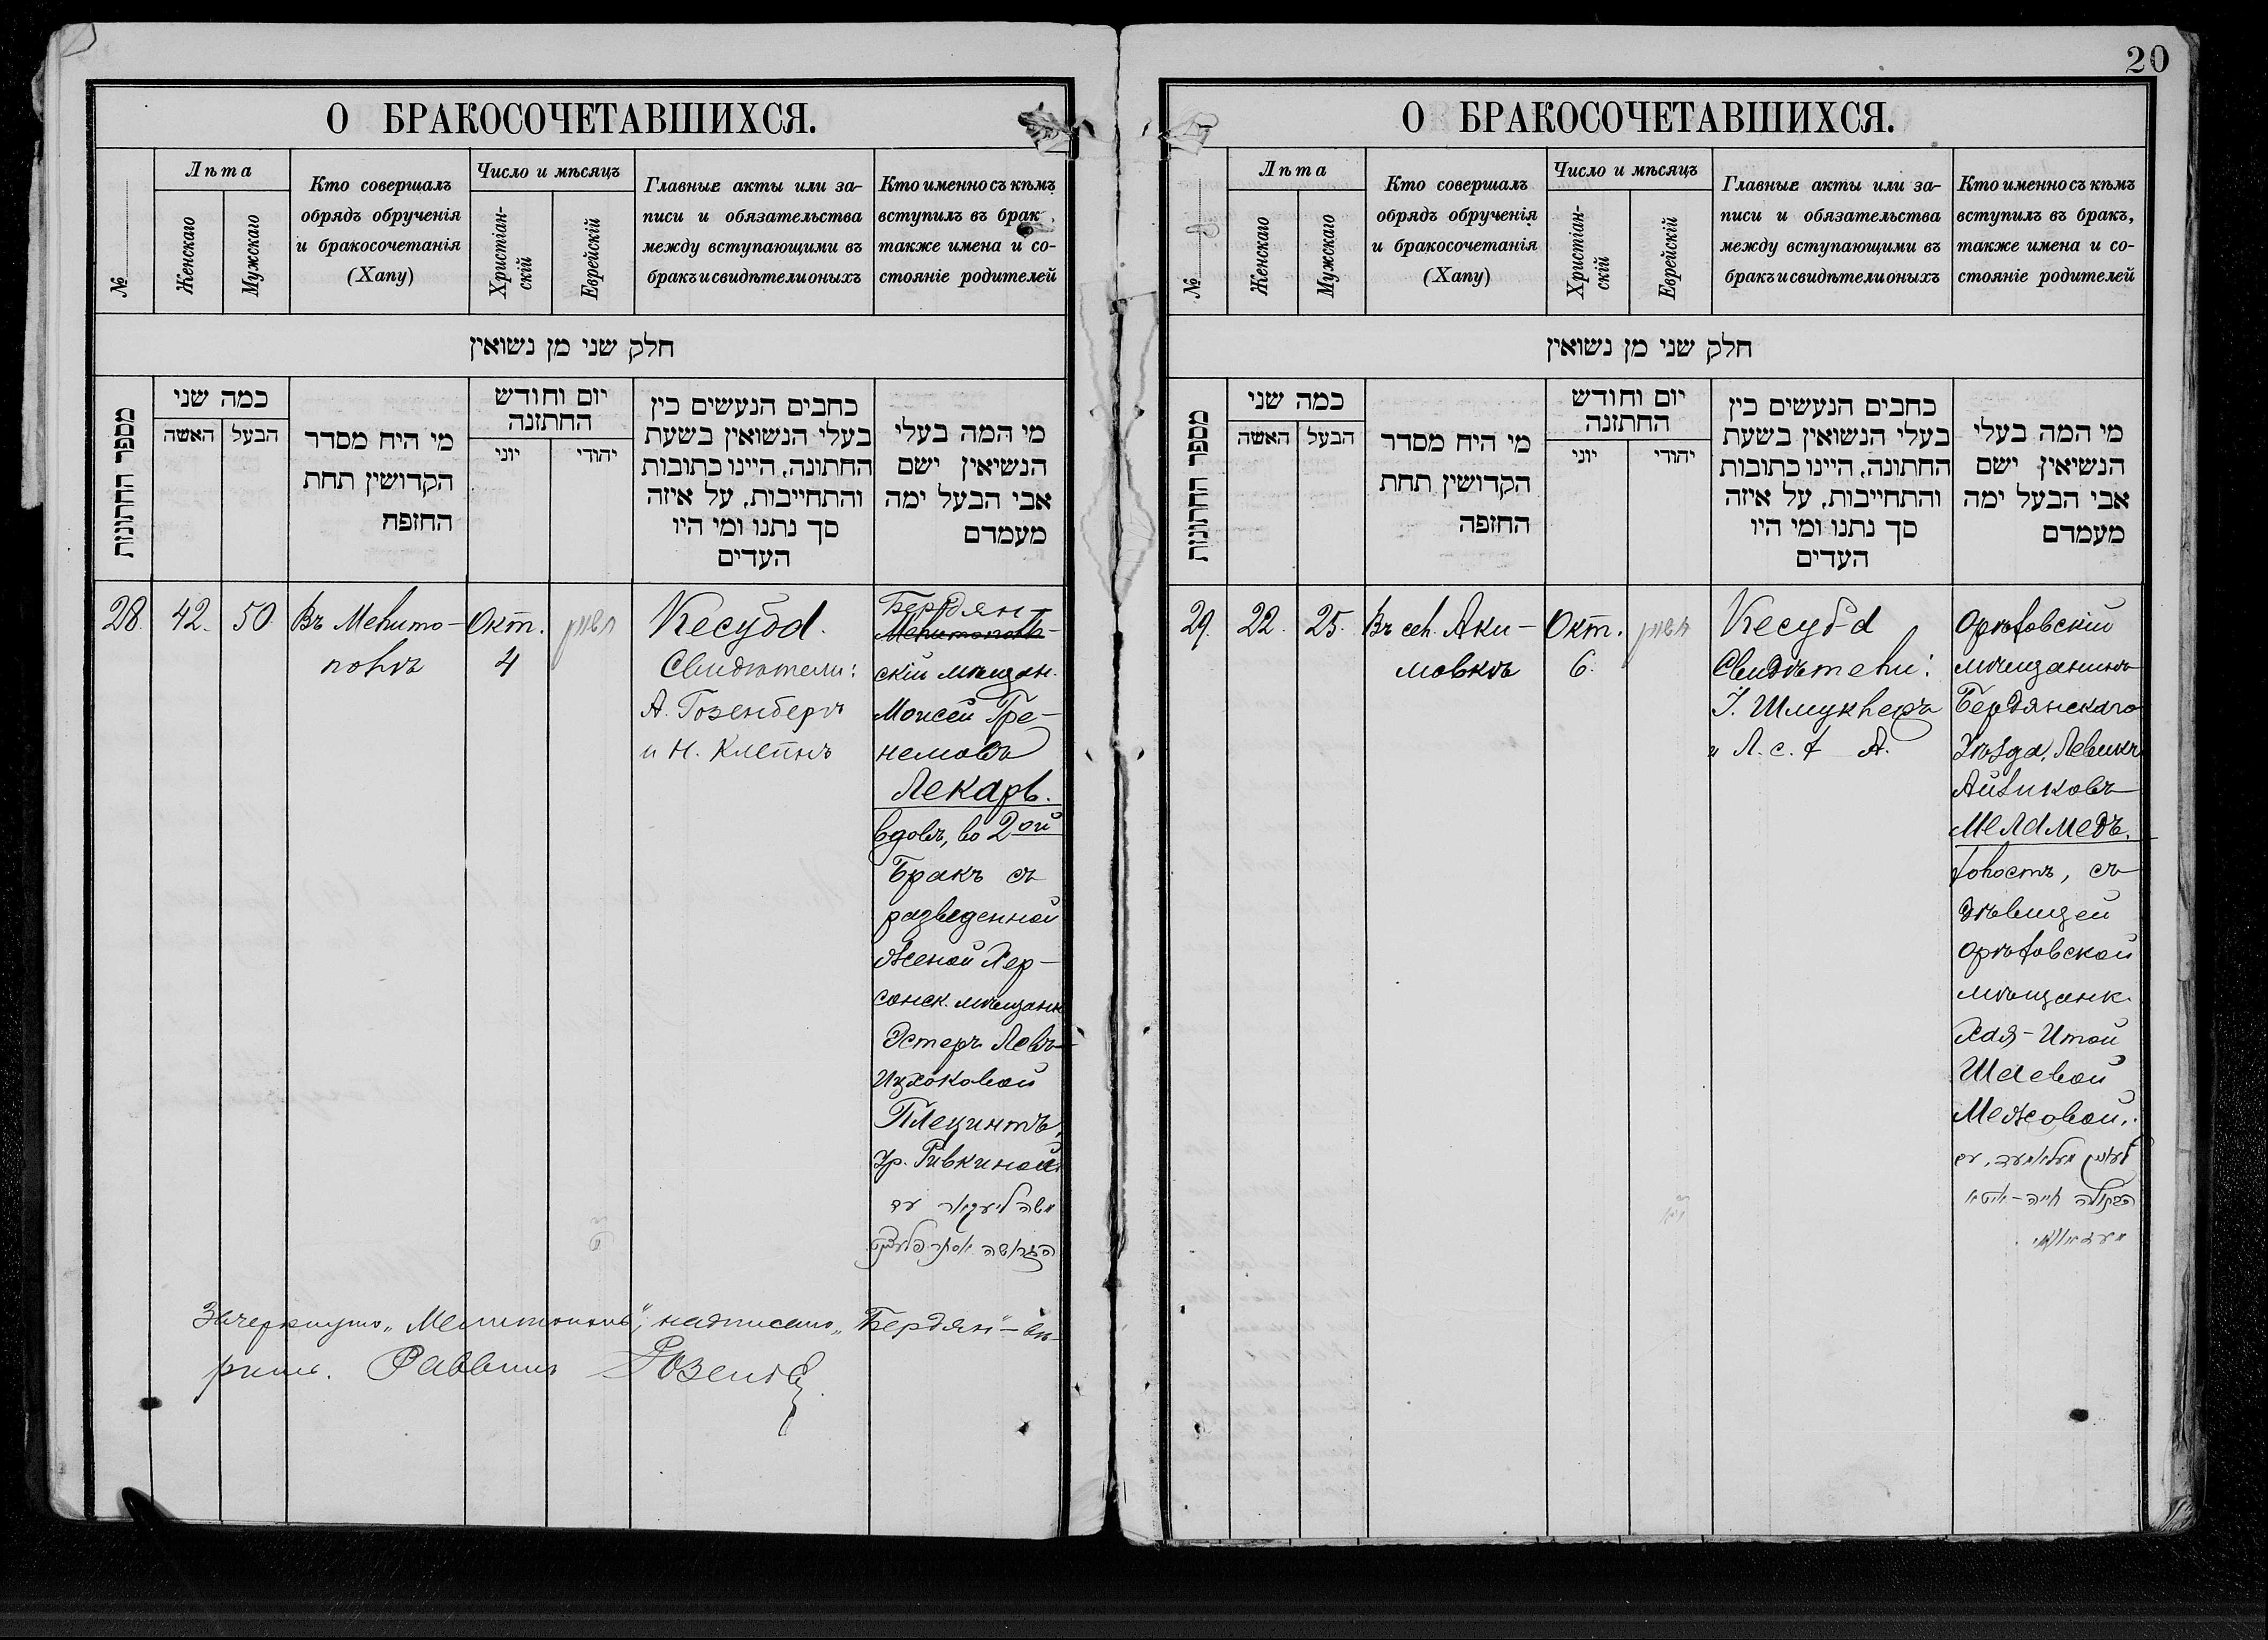 20
О БРАКОСОЧЕТАВШИХСЯ.
№
Лѣта
Женскаго
Мужскаго
Кто совершалъ
обрядъ обрученія
и бракосочетанія
(Хапу)
Число и мѣсяцъ
Христіан-
скій
Еврейскій
Главные акты или за-
писи и обязательства
между вступающими въ
бракъ и свидѣтели оныхъ
Кто именно съ кѣмъ
вступилъ въ брак
также имена и со-
стояніе родителей
חלק שני מן נשואין
מספר החתונות
כמה שני
האשה
הבעל
מי היח מסדר
הקדושין תחת
החזפח
יום וחודש
החתזנה
יוני
יהודי
כחבים הנעשים כין
בעלי הנשואין בשעת
החתונה, היינו כתובות
והתחייבות, על איזה
סך נתנו ומי היו
העדים
מי המה בעלי
הנשיאין ישם
אבי הבעל ימה
מעמדם
28.
42.
50
Въ Мелито-
полѣ
Окт.
4
חשון
Кесуба.
Свидѣтели:
А. Розенбергъ
и Н. Клейнъ
Бердян-
Мелитополь-
скій мѣщан.
Моисей
немовъ
Лекарь.
вдовъ, во 2ой
Бракъ съ
разведенной
женой Хер-
сонск. мѣщанк
Эстеръ Левъ-
Ицхоковой
Плецинтъ,
ур. Ривкиной.
משה ליעקאר עד
הגרושה אסתר
Зачеркнуто „Мелитополь", надписано „Бердян" - вѣ-
рить. Раввинъ
О БРАКОСОЧЕТАВШИХСЯ.
№
Лѣта
Женскаго
Мужскаго
Кто совершалъ
обрядъ обрученія
и бракосочетанія
(Хапу)
Число и мѣсяцъ
Христіан-
скій
Еврейскій
Главные акты или за-
писи и обязательства
между вступающими въ
бракъ и свидѣтели оныхъ
Кто именно съ кѣмъ
вступилъ въ бракъ,
также имена и со-
стояніе родителей
חלק שני מן נשואין
מספר החתונות
כמה שני
האשה
הבעל
מי היח מסדר
הקדושין תחת
החזפה
יום וחודש
החתזנה
יוני
יהודי
כחבים הנעשים כין
בעלי הנשואין בשעת
החתונה, היינו כתובות
והתחייבות, על איזה
סך נתנו ומי היו
העדים
מי המה בעלי
הנשיאין ישם
אבי הבעל ימה
מעמדם
29.
22.
25.
Въ сел. Аки-
мовкѣ
Окт.
6.
חשון
Кесуба
Свидѣтели:
І. Шмуклеръ
Орѣховскій
мѣщанинъ
Бердянскаго
Уѣзда, Левикъ
Айзиковъ
Меламедъ.
холостъ, съ
дѣвицей
Орѣховской
мѣщанк.
Хая-Итой
Шаевой
Межовой.
הבתולה חייה-איטא